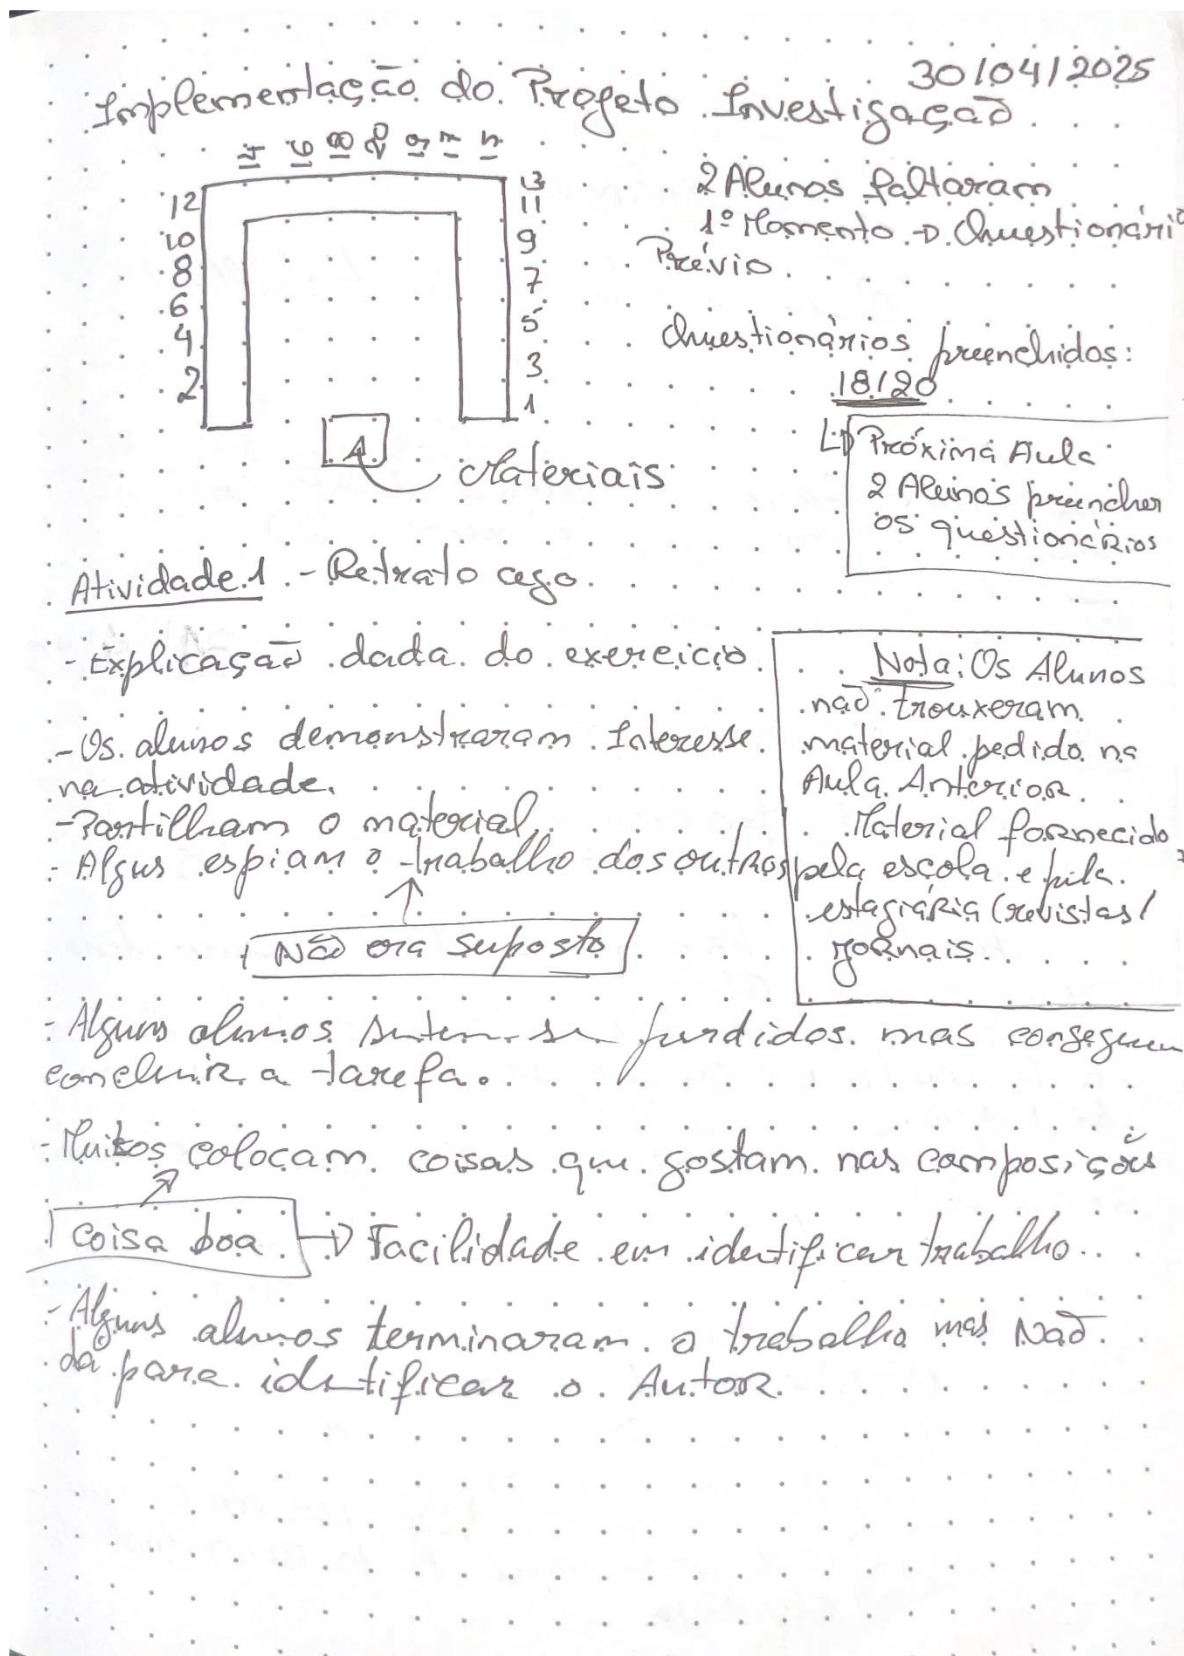 30/04/2025
Implementação do Projeto Investigação
14 16 18 20 19 17 15
12
10
8
6
4
2
13
11
9
7
5
3
1
A
Materiais
2 Alunos faltaram
1º Momento → Questionário
Prévio
Questionários preenchidos:
18/20
Próxima Aula
2 Alunos preencher
os questionários
Atividade 1 - Retrato cego
- Explicação dada do exercicio
- Os alunos demonstraram Interesse
na atividade.
- Partilham o material
- Algus espiam o trabalho dos outros
Não era suposto
Nota: Os Alunos
não trouxeram
material pedido na
Aula Anterior.
Material fornecido
pela escola e pela
estagiária (revistas/
jornais.
- Alguns alunos sentem-se perdidos mas conseguem
concluir a tarefa.
- Muitos colocam coisas que gostam nas composições
Coisa boa → Facilidade em identificar trabalho
- Alguns alunos terminaram o trabalho mas Não
dá para identificar o Autor